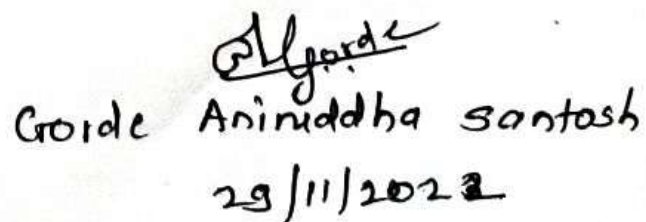 Gorde
Gorde Aniruddha santosh
29/11/2022